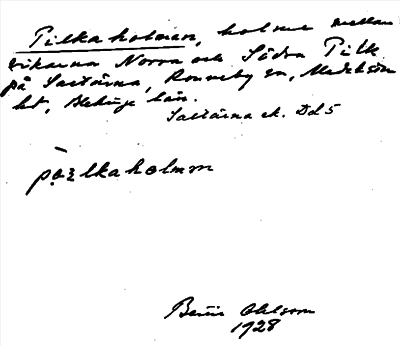 Pilkaholman, holme mellan
vikarna Norra och Södra Pilk
på Saltärna, Ronneby sn, Medelstads
hd, Blekinge län.
Saltärna ek. Dd5
pilkaholmen
Bertil Ohlsson
1928